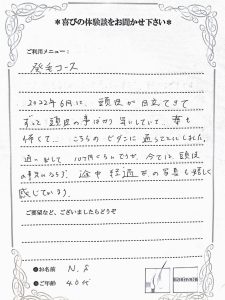 ＊喜びの体験談をお聞かせ下さい＊
ご利用メニュー：
発毛コース
2022年6月に、頭皮が目立てきて
ずっと頭皮の事ばかり気にしていて、
こちらのビダンに通うことにしました。
通い出して10ヶ月くらいですが、今では、頭皮
の事気にならず、途中経過の写真も嬉しく
感じている
ご要望など、ございましたらどうぞ
●お名前 N.
●ご年齢 40代